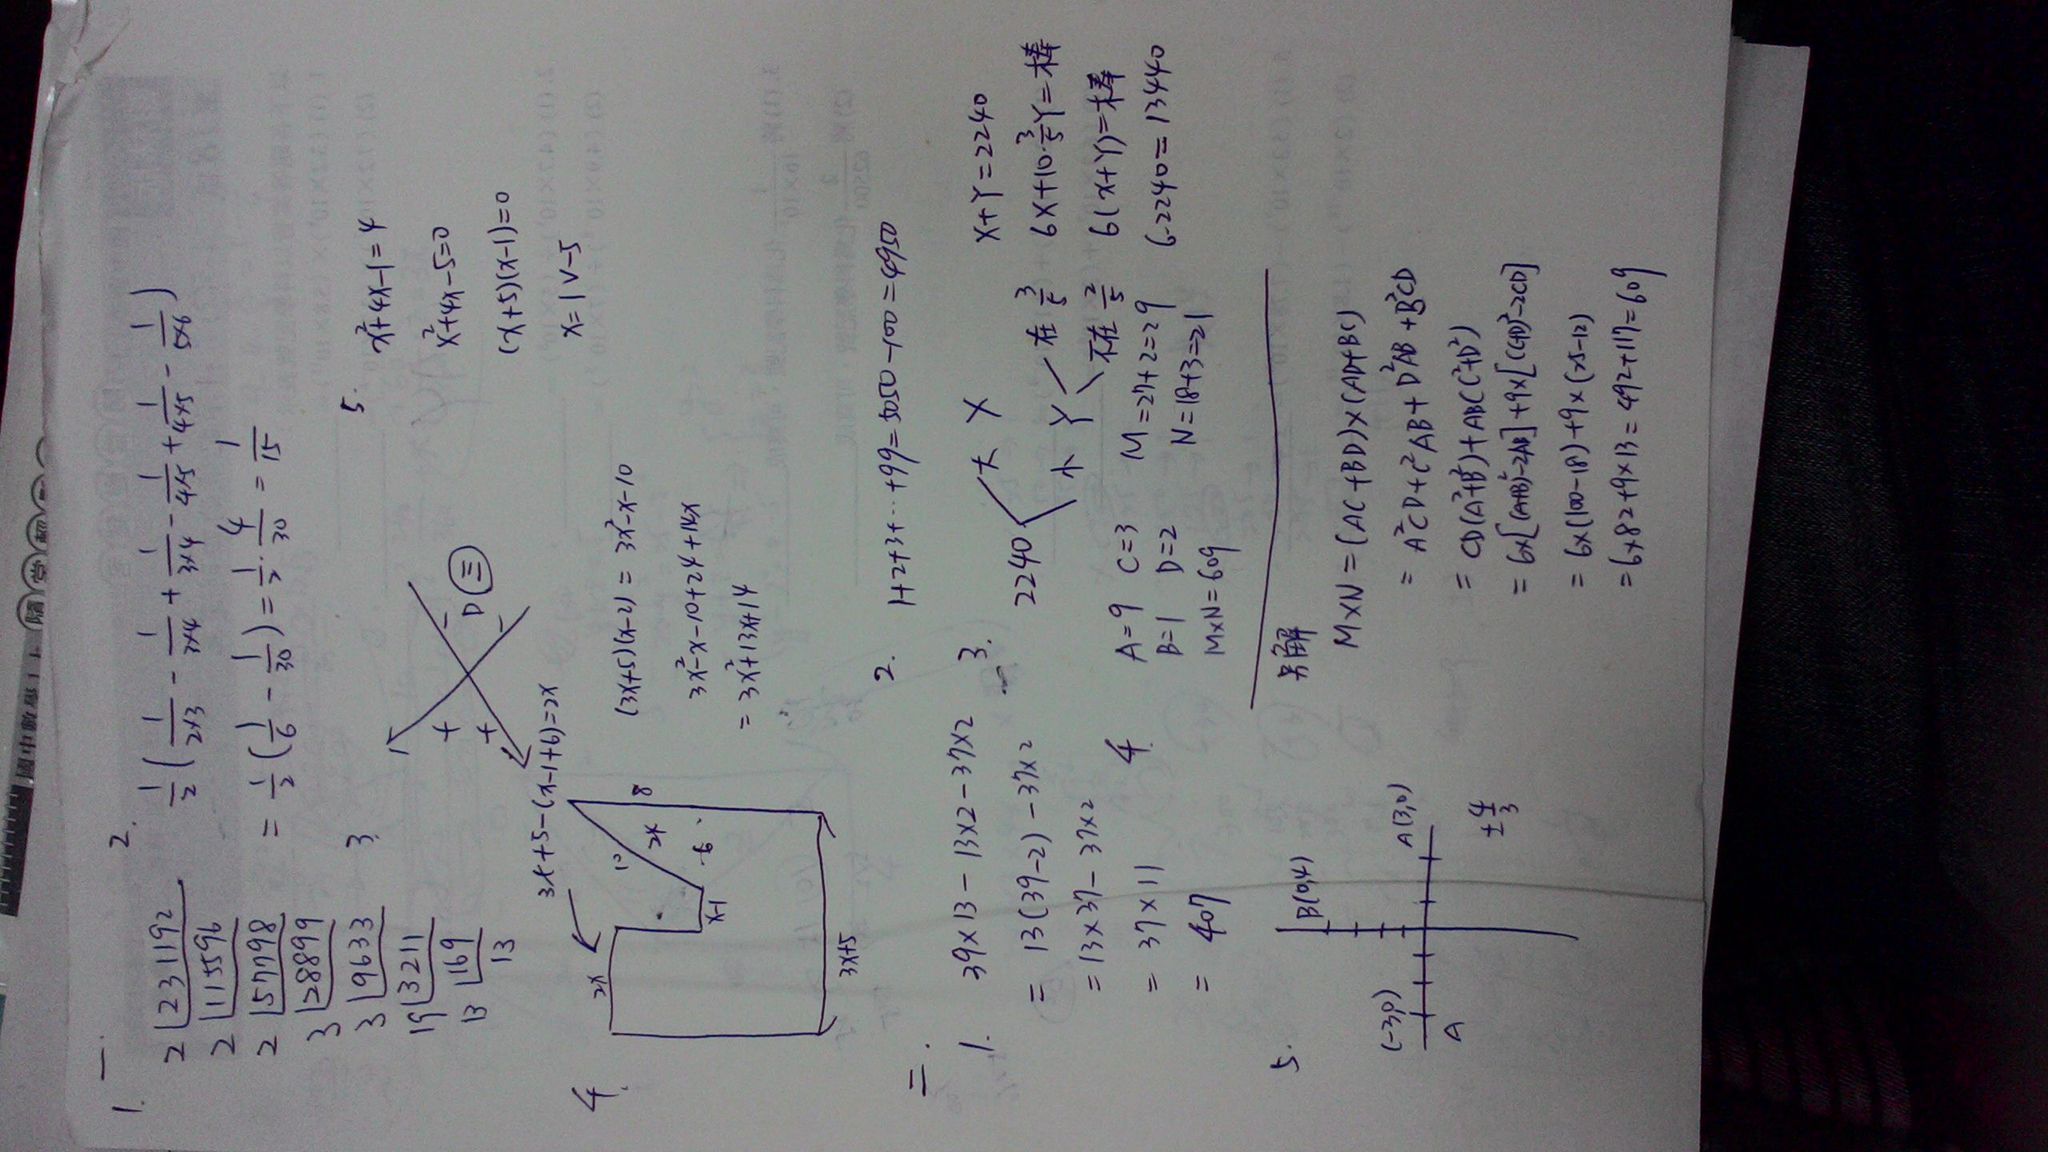 一.
1.
2 231192
2 115596
2 57798
3 28899
3 9633
19 3211
13 169
13
2.
1/2 (1/2×3 - 1/3×4 + 1/3×4 - 1/4×5 + 1/4×5 - 1/5×6)
= 1/2 (1/6 - 1/30) = 1/2 · 4/30 = 1/15
3.
+ -
+ -
D 三
4.
3x+5-(x-1+6)=2x
2x
10
8
24
6
x-1
3x+5
(3x+5)(x-2) = 3x²-x-10
3x²-x-10+24+14x
= 3x²+13x+14
5.
x²+4x-1=4
x²+4x-5=0
(x+5)(x-1)=0
x=1 V -5
二.
1.
39×13-13×2-37×2
= 13(39-2)-37×2
= 13×37-37×2
= 37×11
= 407
2.
1+2+3+…+99=5050-100=4950
3.
2240
大 X
小 Y
在 3/5
不在 2/5
X+Y=2240
6X+10·3/5Y=棒
6(X+Y)=棒
6·2240=13440
4.
A=9 C=3 M=27+2=29
B=1 D=2 N=18+3=21
M×N=609
另解
M×N=(AC+BD)×(AD+BC)
= A²CD+C²AB+D²AB+B²CD
= CD(A²+B²)+AB(C²+D²)
= 6×[(A+B)²-2AB]+9×[(C+D)²-2CD]
= 6×(100-18)+9×(25-12)
= 6×82+9×13=492+117=609
5.
(-3,0)
A
B(0,4)
A(3,0)
±4/3